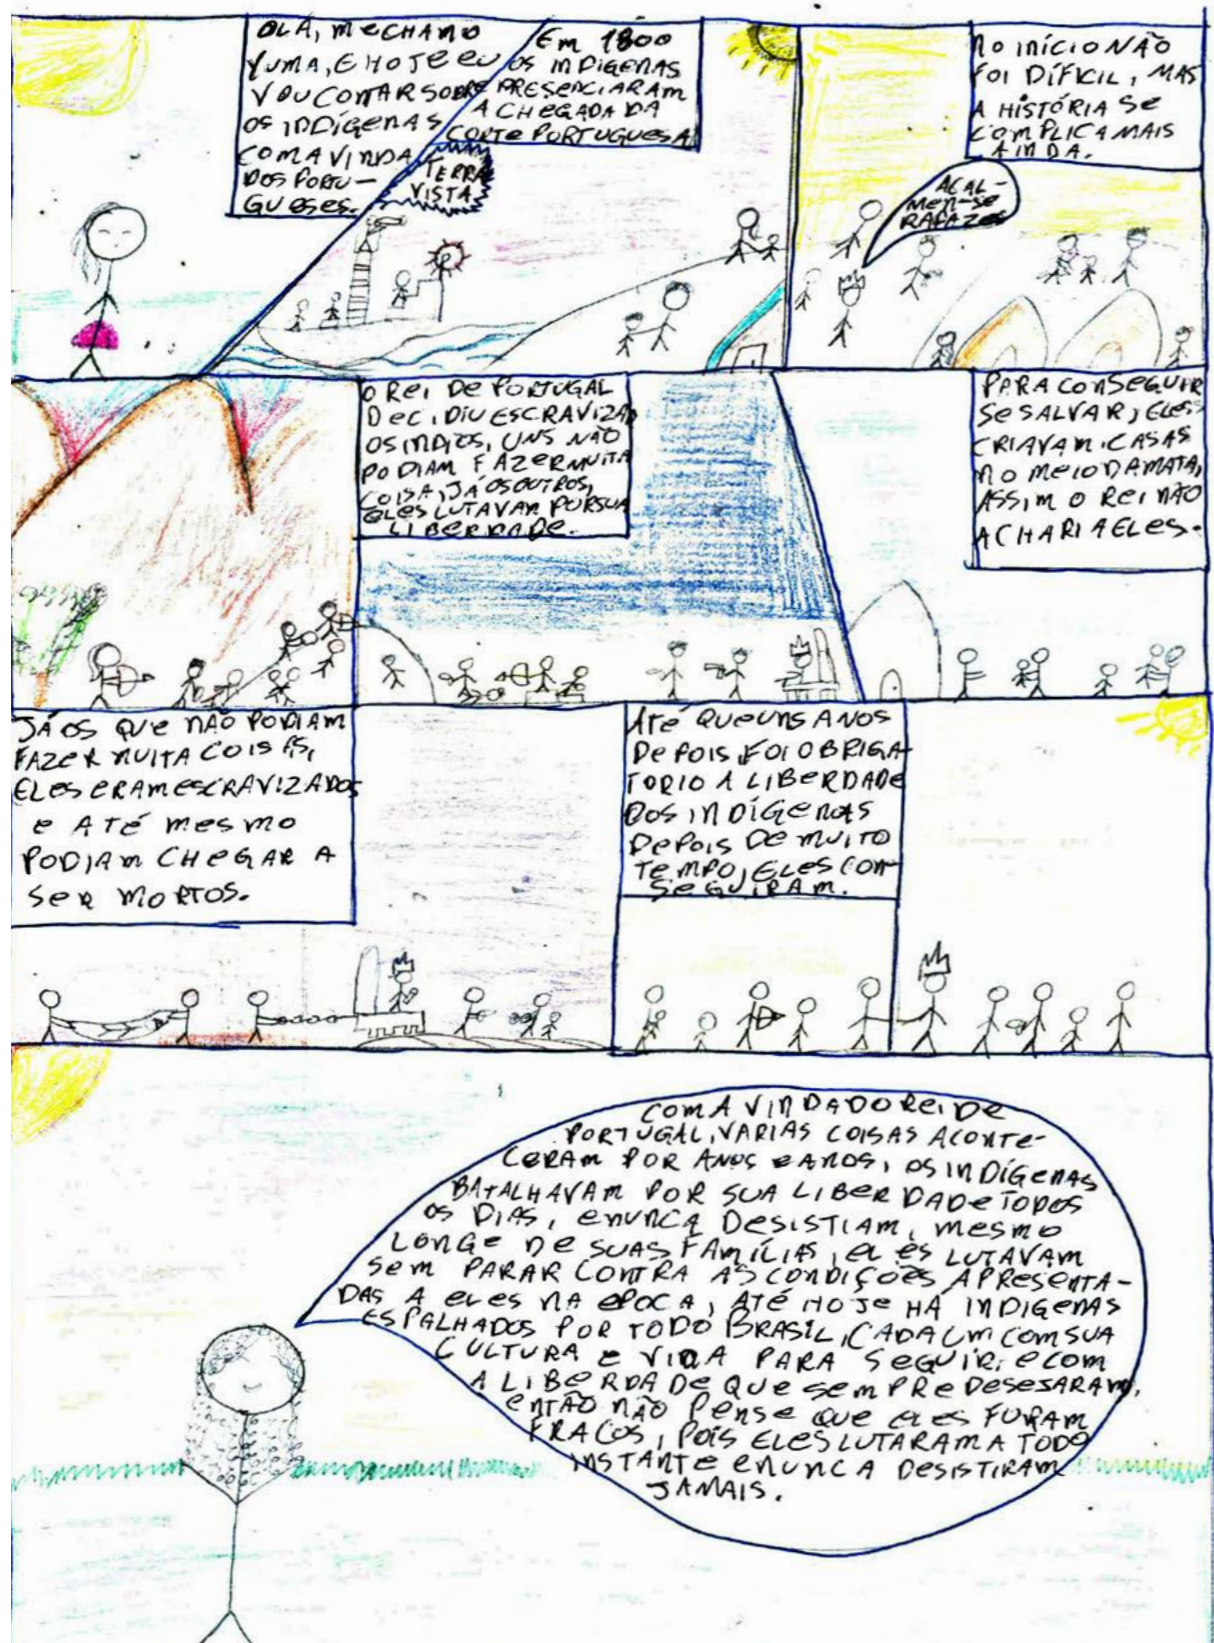 OLÁ, ME CHAMO
YUMA, E HOJE EU
VOU CONTAR SOBRE
OS INDÍGENAS
COM A VINDA
DOS PORTU-
GUESES.
EM 1800
OS INDIGENAS
PRESENCIARAM
A CHEGADA DA
CORTE PORTUGUESA
TERRA
VISTA
NO INÍCIO NÃO
FOI DÍFICIL, MAS
A HISTÓRIA SE
COMPLICA MAIS
AINDA.
ACAL-
MEN-SE
RAPAZES
O REI DE PORTUGAL
DECIDIU ESCRAVIZAR
OS INDIOS, UNS NÃO
PODIAM FAZER MUITA
COISA, JÁ OS OUTROS,
ELES LUTAVAM POR SUA
LIBERDADE.
PARA CONSEGUIR
SE SALVAR, ELES
CRIAVAM CASAS
NO MEIO DA MATA,
ASSIM O REI NÃO
ACHARIA ELES.
JÁ OS QUE NÃO PODIAM
FAZER MUITA COISAS,
ELES ERAM ESCRAVIZADOS
E ATÉ MESMO
PODIAM CHEGAR A
SER MORTOS.
ATÉ QUE UNS ANOS
DEPOIS, FOI OBRIGA-
TORIO A LIBERDADE
DOS INDÍGENAS
DEPOIS DE MUITO
TEMPO, ELES CON-
SEGUIRAM.
COM A VINDA DO REI DE
PORTUGAL, VARIAS COISAS ACONTE-
CERAM POR ANOS E ANOS, OS INDÍGENAS
BATALHAVAM POR SUA LIBERDADE TODOS
OS DIAS, E NUNCA DESISTIAM, MESMO
LONGE DE SUAS FAMÍLIAS, ELES LUTAVAM
SEM PARAR CONTRA AS CONDIÇÕES APRESENTA-
DAS A ELES NA EPOCA, ATÉ HOJE HÁ INDIGENAS
ESPALHADOS POR TODO BRASIL, CADA UM COM SUA
CULTURA E VIDA PARA SEGUIR, E COM
A LIBERDADE QUE SEMPRE DESEJARAM,
ENTÃO NÃO PENSE QUE ELES FORAM
FRACOS, POIS ELES LUTARAM A TODO
INSTANTE E NUNCA DESISTIRAM
JAMAIS.